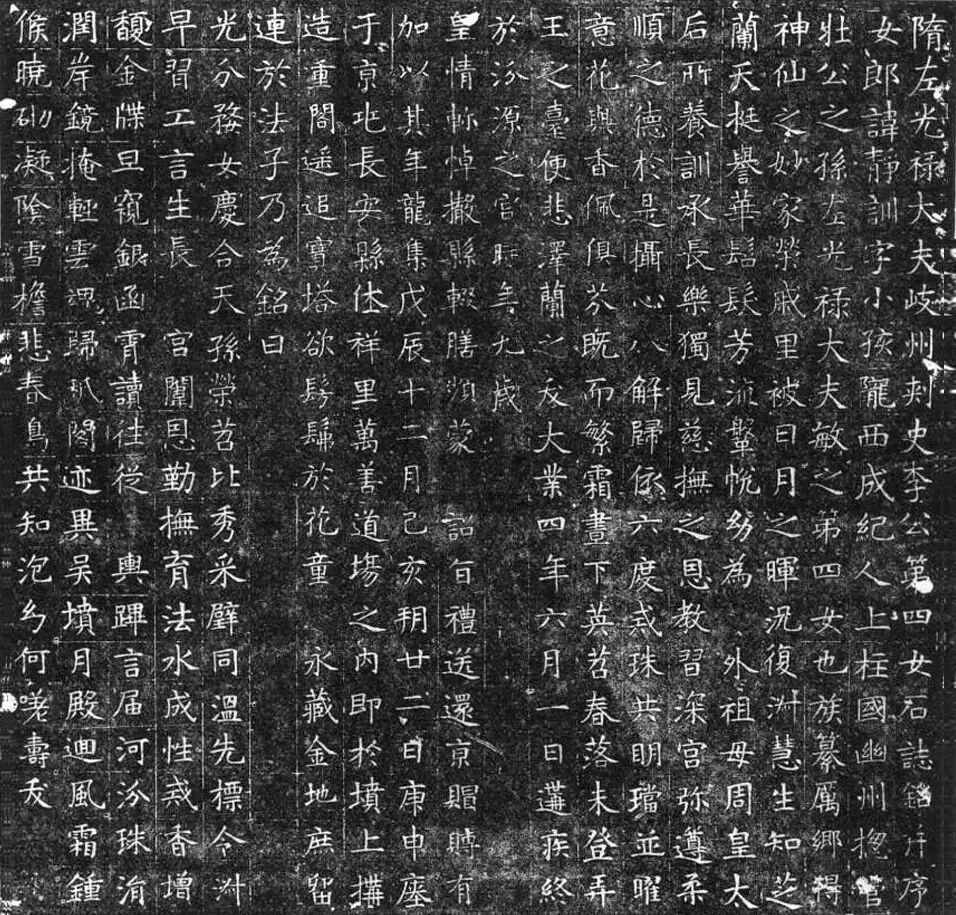 隋左光祿大夫岐州刺史李公第四女石誌銘并序
女郎諱靜訓字小孩隴西成紀人上柱國幽州揔管
壯公之孫左光祿大夫敏之第四女也族纂厲鄉得
神仙之妙家榮戚里被日月之暉況復淋慧生知芝
蘭天挺譽華髫髮芳流鞶帨幼為外祖母周皇太
后所養訓承長樂獨見慈撫之恩教習深宮弥遵柔
順之德於是攝心八解歸依六度戒珠共明璫並曜
意花與香佩俱芬既而繁霜晝下英苕春落未登弄
玉之臺便悲澤蘭之夭大業四年六月一日遘疾終
於汾源之宮時年九歲
皇情軫悼撤縣輟膳頻蒙 詔旨禮送還京賵賻有
加以其年龍集戊辰十二月己亥朔廿二日庚申瘞
于京兆長安縣休祥里萬善道場之內即於墳上搆
造重閣遥追寶塔欲髣髴於花童永藏金地庶留
連於法子乃為銘曰
光分婺女慶合天孫榮苕比秀采璧同溫先標令淋
早習工言生長 宮闈恩勤撫育法水成性戒香增
馥金牒旦窺銀函霄讀往從 輿蹕言届河汾珠涓
潤岸鏡掩輕雲魂歸 閣迹異吳墳月殿迴風霜鍾
候曉砌凝陰雪檐悲春鳥共知泡幻何嗟壽夭